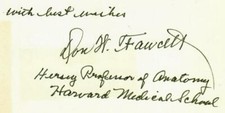 with best wishes
Don W. Fawcett
Hersey Professor of Anatomy
Harvard Medical School